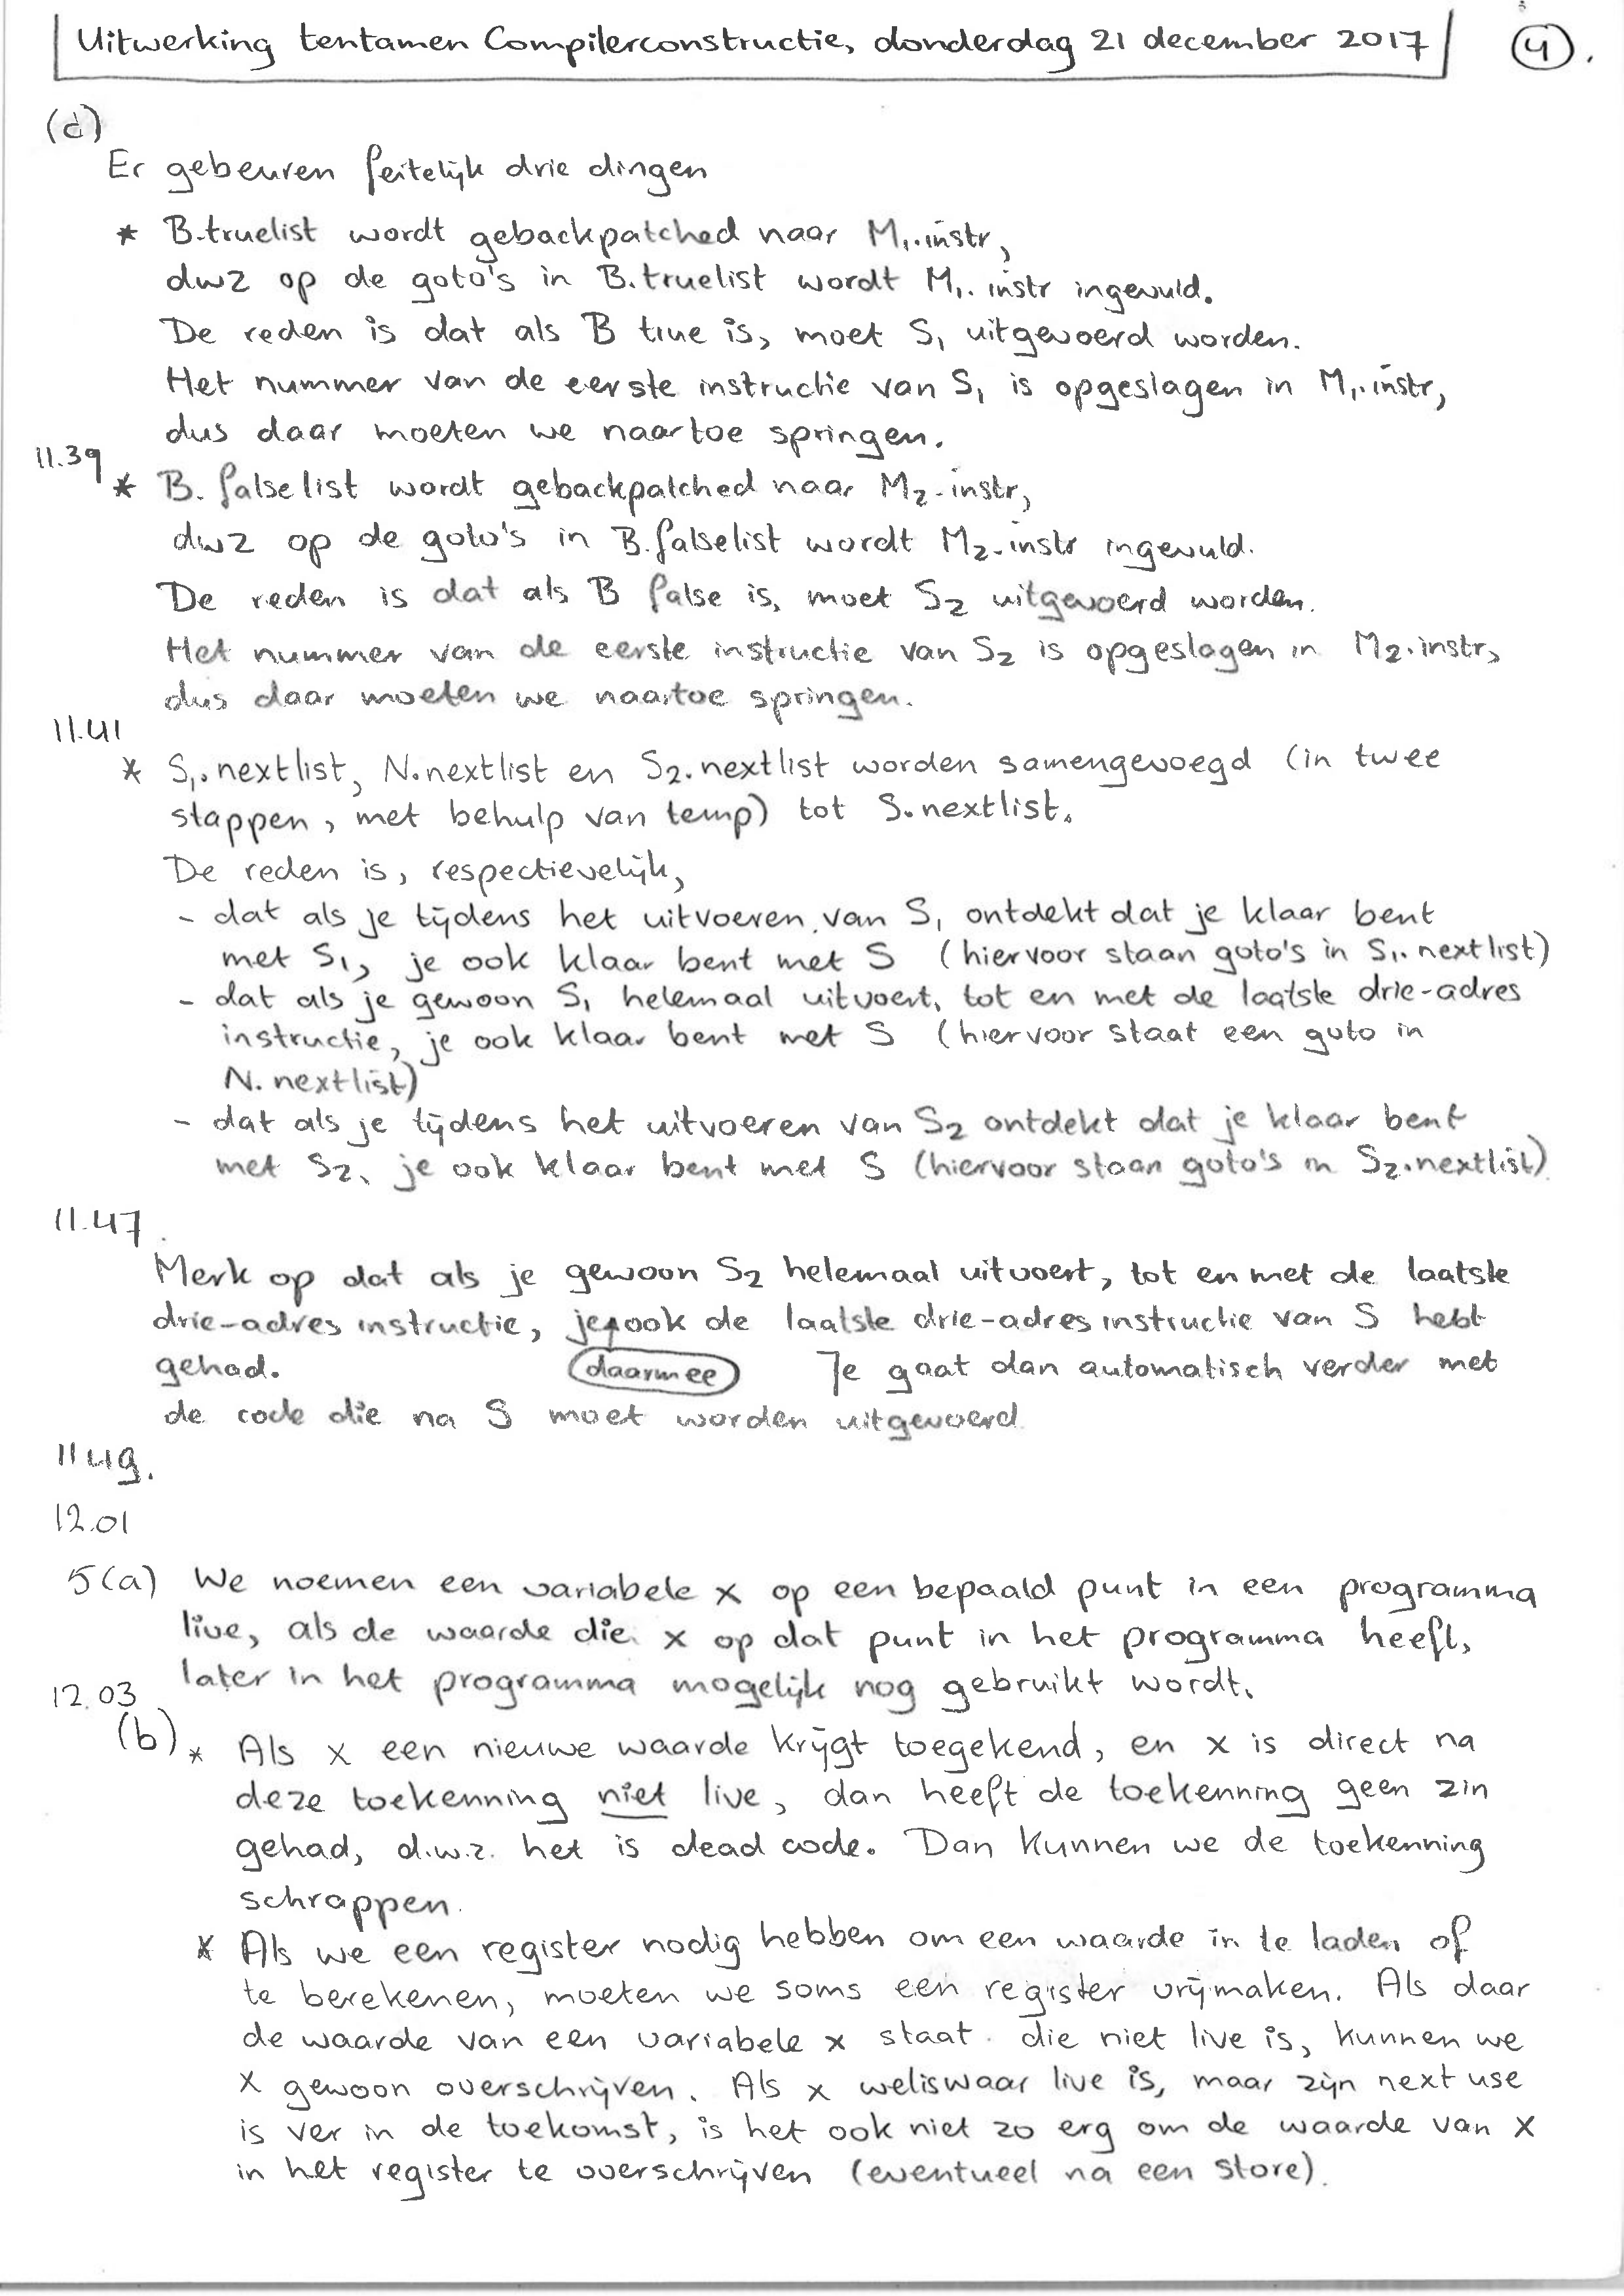 Uitwerking tentamen Compilerconstructie, donderdag 21 december 2017 (4).
(d)
Er gebeuren feitelijk drie dingen
* B.truelist wordt gebackpatched naar M₁.instr,
dwz op de goto's in B.truelist wordt M₁.instr ingevuld.
De reden is dat als B true is, moet S₁ uitgevoerd worden.
Het nummer van de eerste instructie van S₁ is opgeslagen in M₁.instr,
dus daar moeten we naartoe springen.
11.39
* B.falselist wordt gebackpatched naar M₂.instr,
dwz op de goto's in B.falselist wordt M₂.instr ingevuld.
De reden is dat als B false is, moet S₂ uitgevoerd worden.
Het nummer van de eerste instructie van S₂ is opgeslagen in M₂.instr,
dus daar moeten we naartoe springen.
11.41
* S₁.nextlist, N.nextlist en S₂.nextlist worden samengevoegd (in twee
stappen, met behulp van temp) tot S.nextlist.
De reden is, respectievelijk,
- dat als je tijdens het uitvoeren van S₁ ontdekt dat je klaar bent
met S₁, je ook klaar bent met S (hiervoor staan goto's in S₁.nextlist)
- dat als je gewoon S₁ helemaal uitvoert, tot en met de laatste drie-adres
instructie, je ook klaar bent met S (hiervoor staat een goto in
N.nextlist)
- dat als je tijdens het uitvoeren van S₂ ontdekt dat je klaar bent
met S₂, je ook klaar bent met S (hiervoor staan goto's in S₂.nextlist).
11.47
Merk op dat als je gewoon S₂ helemaal uitvoert, tot en met de laatste
drie-adres instructie, je ook de laatste drie-adres instructie van S hebt
gehad. daarmee Je gaat dan automatisch verder met
de code die na S moet worden uitgevoerd
11 49.
12.01
5(a) We noemen een variabele x op een bepaald punt in een programma
live, als de waarde die x op dat punt in het programma heeft,
later in het programma mogelijk nog gebruikt wordt.
12.03
(b) * Als x een nieuwe waarde krijgt toegekend, en x is direct na
deze toekenning niet live, dan heeft de toekenning geen zin
gehad, d.w.z. het is dead code. Dan kunnen we de toekenning
schrappen.
* Als we een register nodig hebben om een waarde in te laden of
te berekenen, moeten we soms een register vrijmaken. Als daar
de waarde van een variabele x staat die niet live is, kunnen we
x gewoon overschrijven. Als x weliswaar live is, maar zijn next use
is ver in de toekomst, is het ook niet zo erg om de waarde van x
in het register te overschrijven (eventueel na een store).